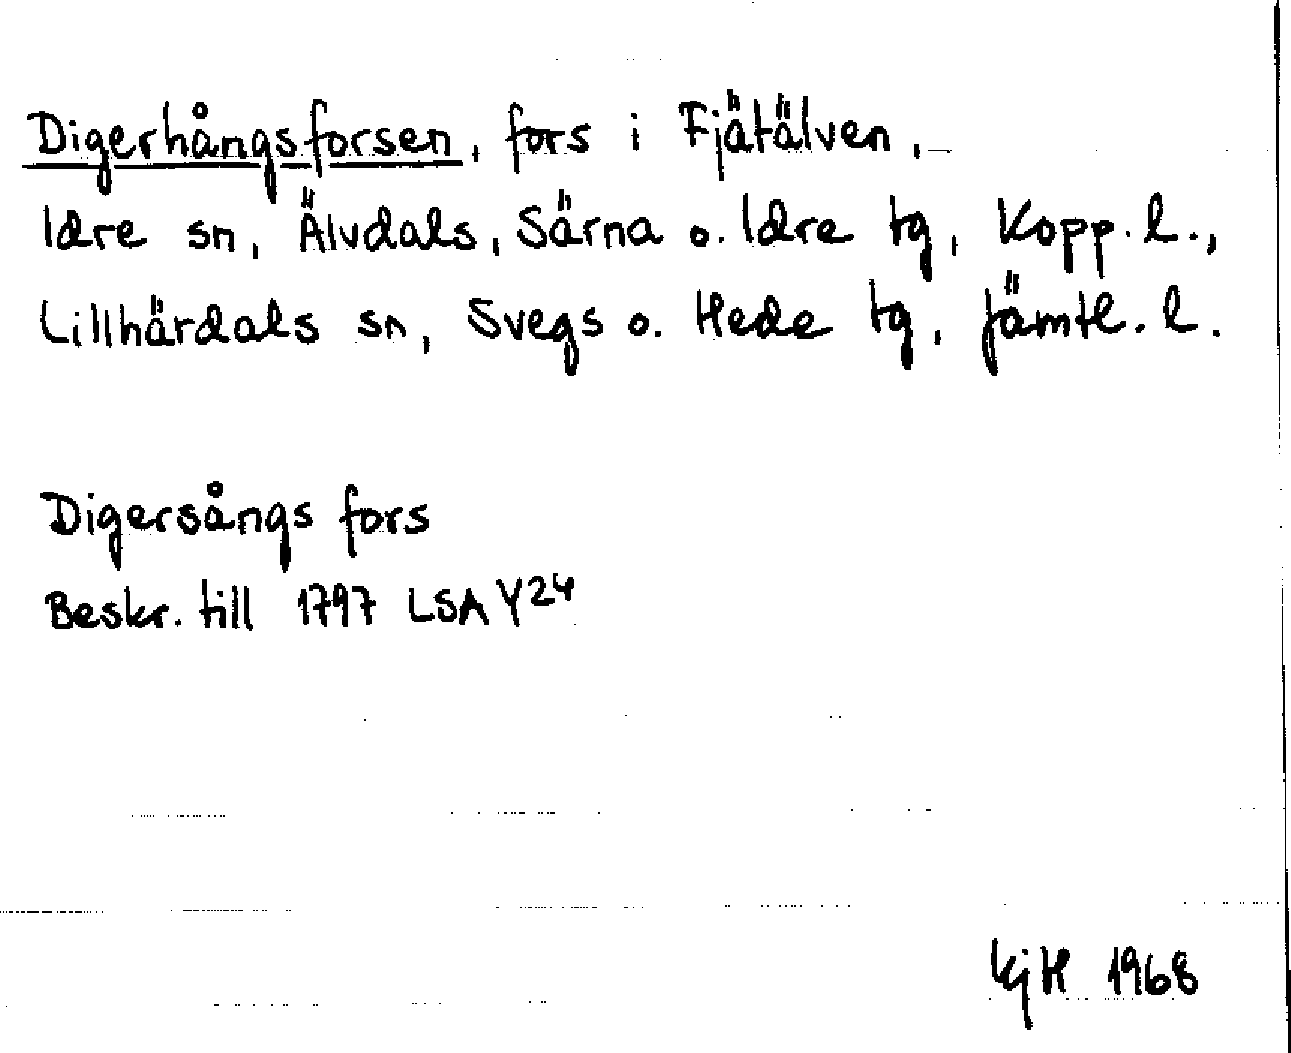 Digerhångsforsen, fors i Fjätälven,
Idre sn, Älvdals, Särna o. Idre tg, Kopp. l.,
Lillhärdals sn, Svegs o. Hede tg, Jämtl. l.
Digersångs fors
Beskr. till 1797 LSA Y24
KjH 1968